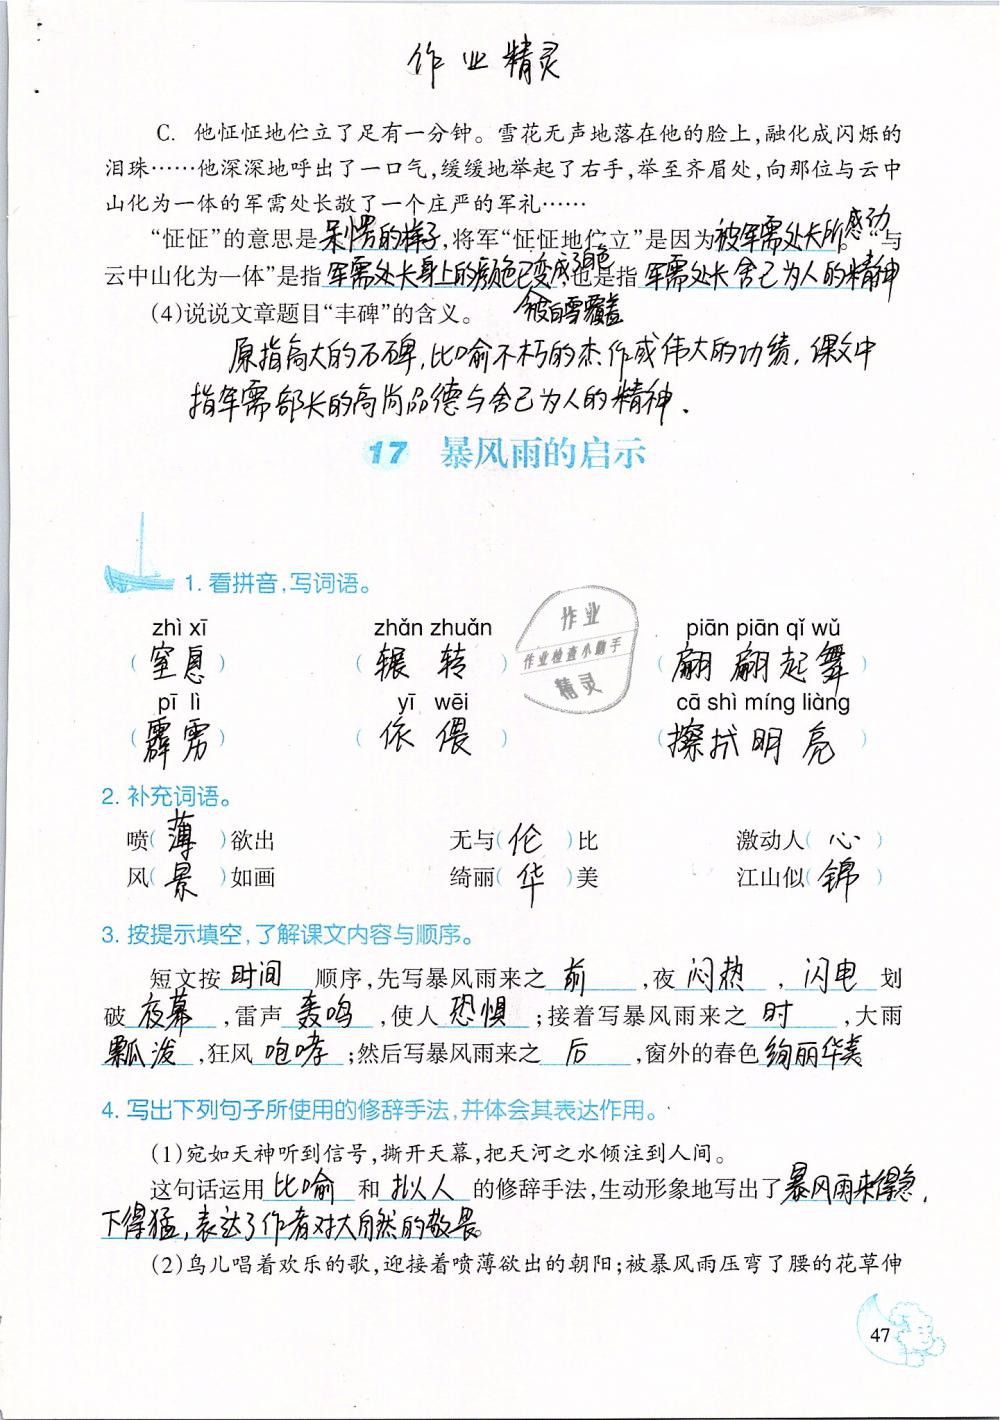 作业精灵
C. 他怔怔地伫立了足有一分钟。雪花无声地落在他的脸上,融化成闪烁的
泪珠……他深深地呼出了一口气,缓缓地举起了右手,举至齐眉处,向那位与云中
山化为一体的军需处长敬了一个庄严的军礼……
“怔怔”的意思是呆愣的样子,将军“怔怔地伫立”是因为被军需处长所感动。“与
云中山化为一体”是指军需处长身上的颜色已变成了白色,也是指军需处长舍己为人的精神
(4)说说文章题目“丰碑”的含义。 被白雪覆盖
原指高大的石碑,比喻不朽的杰作或伟大的功绩,课文中
指军需部长的高尚品德与舍己为人的精神.
17 暴风雨的启示
1. 看拼音,写词语。
zhì xī zhǎn zhuǎn piān piān qǐ wǔ
(窒息) (辗转) (翩翩起舞)
pī lì yī wēi cā shì míng liàng
(霹雳) (依偎) (擦拭明亮)
2. 补充词语。
喷(薄)欲出 无与(伦)比 激动人(心)
风(景)如画 绮丽(华)美 江山似(锦)
3. 按提示填空,了解课文内容与顺序。
短文按时间顺序,先写暴风雨来之前,夜闷热,闪电划
破夜幕,雷声轰鸣,使人恐惧;接着写暴风雨来之时,大雨
瓢泼,狂风咆哮;然后写暴风雨来之后,窗外的春色绚丽华美
4. 写出下列句子所使用的修辞手法,并体会其表达作用。
(1)宛如天神听到信号,撕开天幕,把天河之水倾注到人间。
这句话运用比喻和拟人的修辞手法,生动形象地写出了暴风雨来得急,
下得猛,表达了作者对大自然的敬畏。
(2)鸟儿唱着欢乐的歌,迎接着喷薄欲出的朝阳;被暴风雨压弯了腰的花草伸
47
作业
作业检查小助手
精灵